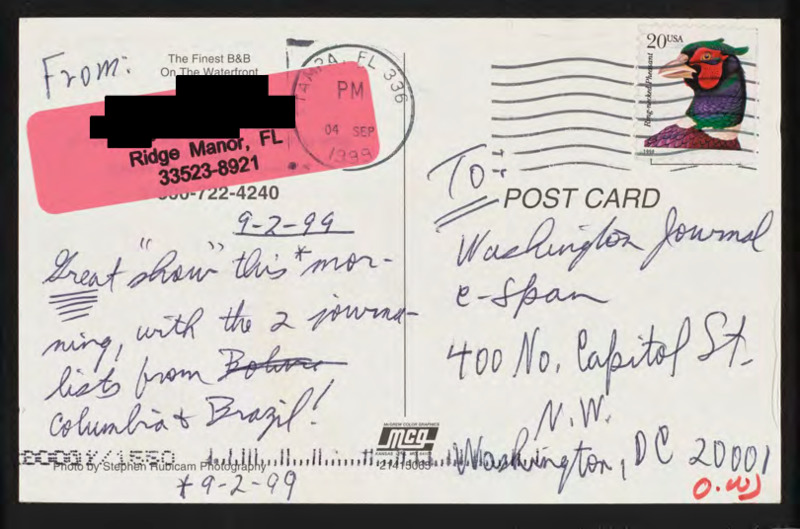 From:
The Finest B&B
On The Waterfront
Ridge Manor, FL
33523-8921
800-722-4240
TAMPA, FL 336
PM
04 SEP
1999
20USA
Ring-necked Pheasant
1998
POST CARD
9-2-99
Great "show" this * mor-
ning, with the 2 journa-
lists from
Columbia & Brazil!
To:
Washington Journal
c-Span
400 No. Capitol St.
N.W.
Washington, DC 20001
McGREW COLOR GRAPHICS
mcg
Photo by Stephen Rubicam Photography
*9-2-99